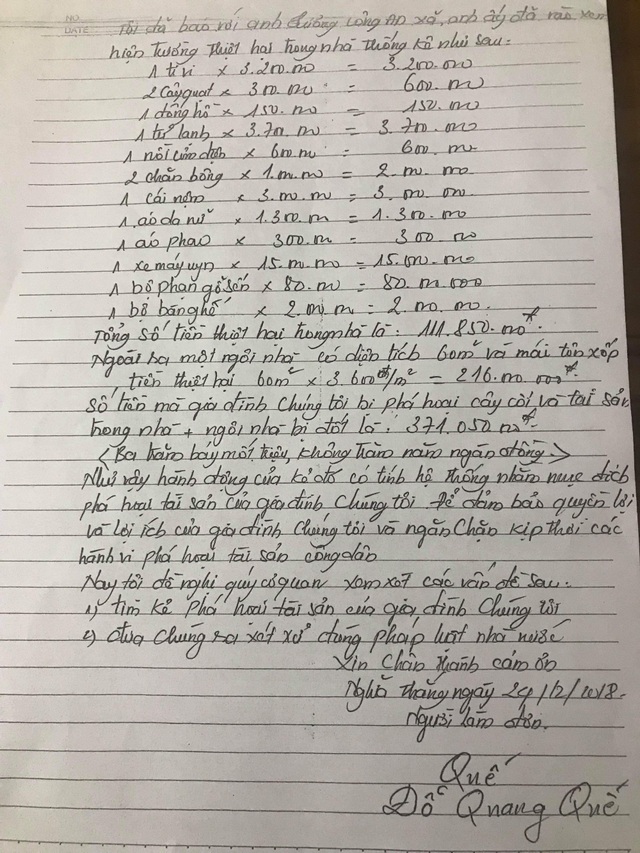 NO.
DATE
Tôi đã báo với anh Cường Công An xã, anh ấy đã vào xem
hiện tượng thiệt hại trong nhà thống kê như sau:
1 ti vi x 3.200.000 = 3.200.000
2 cây quạt x 300.000 = 600.000
1 đồng hồ x 150.000 = 150.000
1 tủ lạnh x 3.700.000 = 3.700.000
1 nồi cơm điện x 600.000 = 600.000
2 chăn bông x 1.000.000 = 2.000.000
1 cái nệm x 3.000.000 = 3.000.000
1 áo da nữ x 1.300.000 = 1.300.000
1 áo phao x 300.000 = 300.000
1 xe máy uyn x 15.000.000 = 15.000.000
1 bộ phản gỗ sến x 80.000 = 80.000.000
1 bộ bàn ghế x 2.000.000 = 2.000.000.
Tổng số tiền thiệt hại trong nhà là: 111.850.000đ.
Ngoài ra một ngôi nhà có diện tích 60m² và mái tôn xốp
tiền thiệt hại 60m² x 3.600đ/m² = 216.000.000đ.
Số tiền mà gia đình chúng tôi bị phá hoại cây cối và tài sản
trong nhà + ngôi nhà bị đốt là: 371.050.000đ
(Ba trăm bảy mốt triệu, không trăm năm ngàn đồng.)
Như vậy hành động của kẻ đó có tính hệ thống nhằm mục đích
phá hoại tài sản của gia đình chúng tôi. Để đảm bảo quyền lợi
và lợi ích của gia đình chúng tôi và ngăn chặn kịp thời các
hành vi phá hoại tài sản công dân
Nay tôi đề nghị quý cơ quan xem xét các vấn đề sau:
1) tìm kẻ phá hoại tài sản của gia đình chúng tôi
2) đưa chúng ra xét xử đúng pháp luật nhà nước
Xin chân thành cảm ơn
Nghĩa Thắng ngày 24/12/2018.
Người làm đơn.
Quế
Đỗ Quang Quế